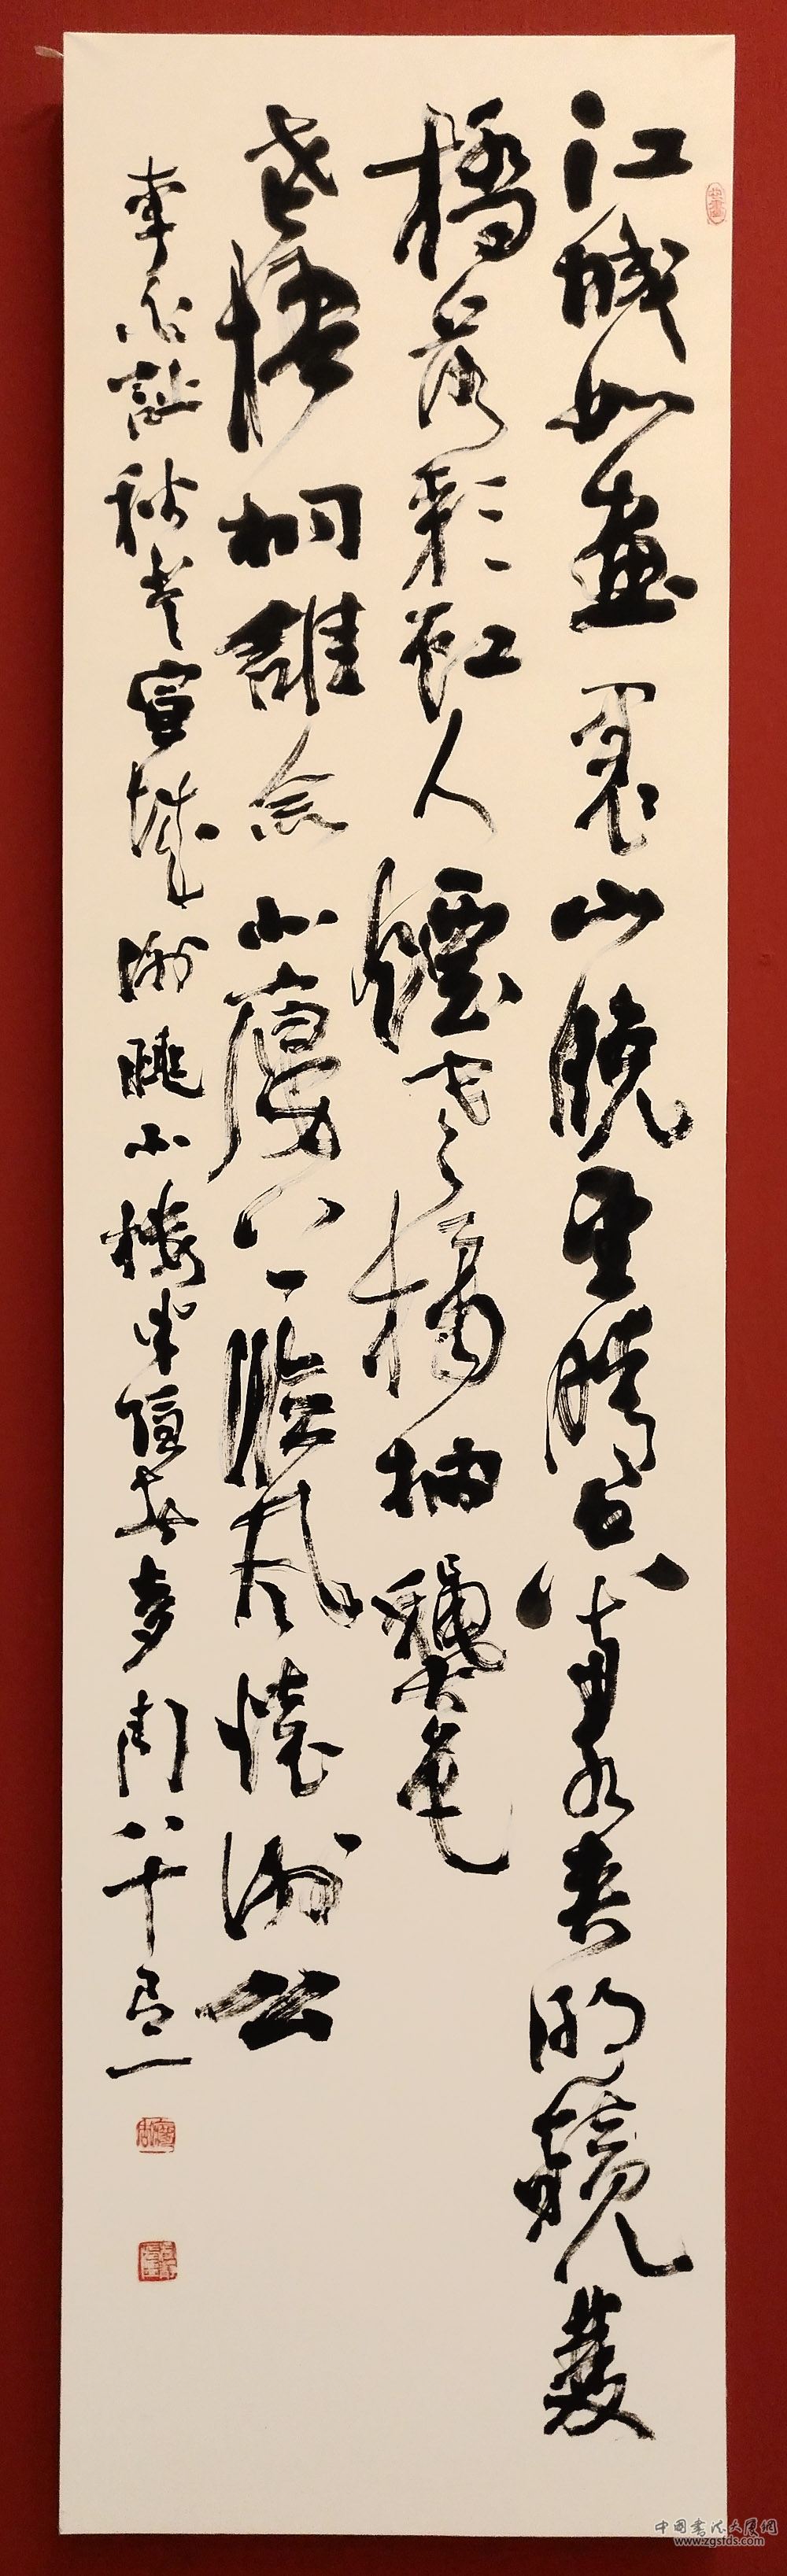 江城如畫裏山晚望晴空兩水夾明鏡雙
橋落彩虹人煙寒橘柚龝色
老梧桐誰念北樓上臨風懷謝公
李白詩秋登宣城謝朓北樓 八十有一
www.zgsfds.com